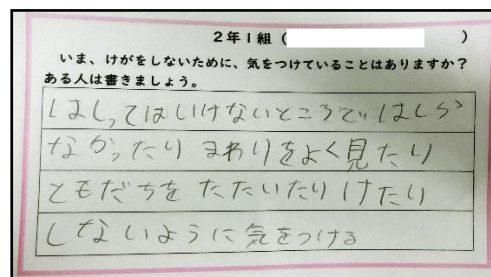 2年1組( )
いま、けがをしないために、気をつけていることはありますか?
ある人は書きましょう。
はしってはいけないところで、はしら
なかったり まわりをよく見たり
ともだちを たたいたり けたり
しないように気をつける